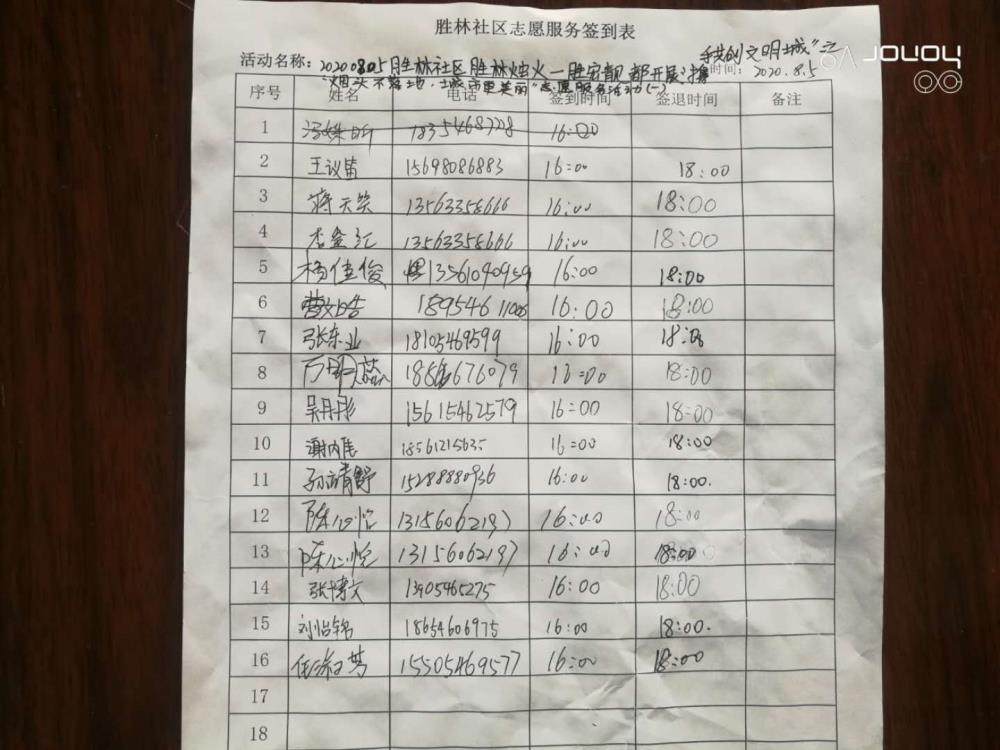 胜林社区志愿服务签到表
活动名称：20200805胜林社区胜林烛火—胜宏靓都开展"我创文明城"之
时间：2020.8.5
"烟头不落地，城市更美丽"志愿服务活动(一)
序号 姓名 电话 签到时间 签退时间 备注
1 18354687728 16:00
2 王议苗 15698086883 16:00 18:00
3 蒋天笑 13563358666 16:00 18:00
4 13563358666 16:00 18:00
5 杨佳俊 13561090959 16:00 18:00
6 16:00 18:00
7 张东业 18105469599 16:00 18:00
8 16:00 18:00
9 吴丹彤 15615462579 16:00 18:00
10 18561215635 16:00 18:00
11 孙靖舒 15288880936 16:00 18:00
12 陈心怡 13156062197 16:00 18:00
13 陈心悦 13156062197 16:00 18:00
14 张博文 13905465275 16:00 18:00
15 刘怡锦 18654606975 16:00 18:00.
16 任淑芳 15505469577 16:00 18:00
17
18
JOVOY